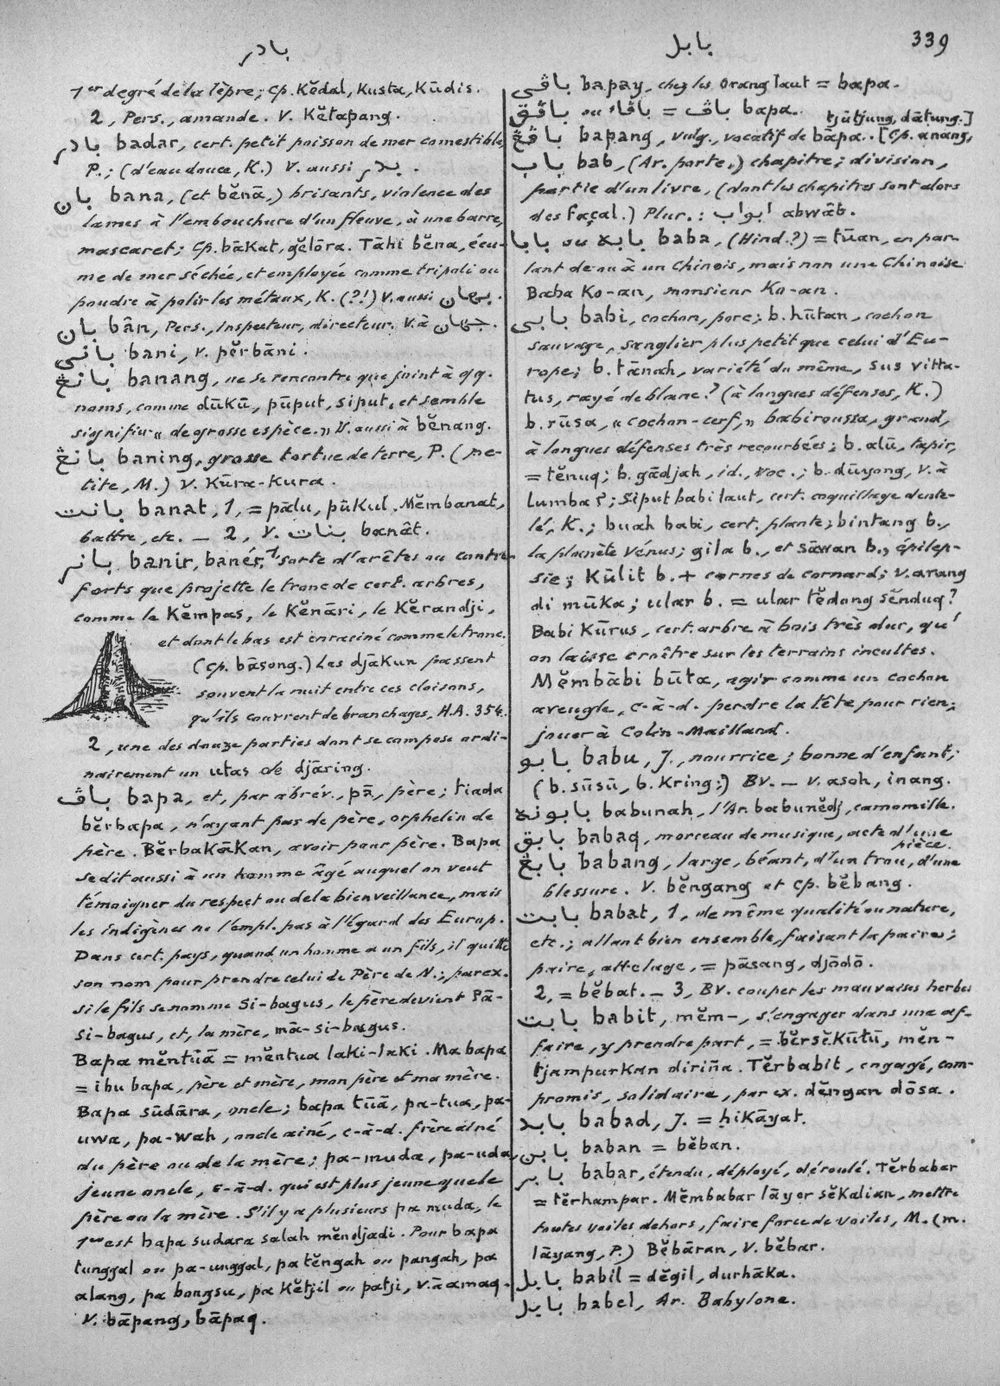 بادر
بابل
339
1er degré de la lèpre; Cp. Kĕdal, Kusta, Kūdis.
2, Pers., amande. V. Kĕtapang.
بادر badar, cert. petit poisson de mer comestible,
P.; (d'eau douce, K.) V. aussi بدر.
بان bana, (et bĕnā,) brisants, violence des
lames à l'embouchure d'un fleuve, à une barre,
mascaret; Cp. bākat, gĕlōra. Tāhi bĕna, écu-
me de mer séchée, et employée comme tripoli ou
poudre à polir les métaux, K. (?!) V. aussi بهان.
بان bân, Pers., Inspecteur, directeur. V. à جهان.
باني bani, v. pĕrbāni.
بانڠ banang, ne se rencontre que joint à qq.
noms, comme dūkū, pūput, siput, et semble
signifier « de grosse espèce. » V. aussi à bĕnang.
بانڠ baning, grosse tortue de terre, P. (pe-
tite, M.) V. Kūra-Kura.
بانت banat, 1, = pālu, pūkul. Mĕmbanat,
battre, etc. — 2, V. بنات banât.
بانر banir, banér, 1, sorte d'arêtes ou contre-
forts que projette le tronc de cert. arbres,
comme le Kĕmpas, le Kĕnāri, le Kĕrandji,
et dont le bas est enraciné comme le tronc.
(Cp. bāsong.) Les djākun passent
souvent la nuit entre ces cloisons,
qu'ils couvrent de branchages, H.A. 354.
2, une des douze parties dont se compose ordi-
nairement un utas de djāring.
باڤ bapa, et, par abrév., pā, père; tiada
bĕrbapa, n'ayant pas de père, orphelin de
père. Bĕrbakākan, avoir pour père. Bapa
se dit aussi à un homme âgé auquel on veut
témoigner du respect ou de la bienveillance, mais
les Indigènes ne l'empl. pas à l'égard des Europ.
Dans cert. pays, quand un homme a un fils, il quitte
son nom pour prendre celui de Père de N.; par ex.
si le fils se nomme Si-bagus, le père devient Pā-
si-bagus, et, la mère, mā-si-bagus.
Bapa mĕntūā = mĕntua laki-laki. Ma bapa
= ibu bapa, père et mère, mon père et ma mère.
Bapa sūdāra, oncle; bapa tūā, pa-tua, pa-
uwa, pa-wah, oncle ainé, c-à-d. frère aîné
du père ou de la mère; pa-muda, pa-uda,
jeune oncle, c-à-d. qui est plus jeune que le
père ou la mère. S'il y a plusieurs pa muda, le
1er est bapa sudara salah mĕndjadi. Pour bapa
tunggal ou pa-unggal, pa tĕngah ou pangah, pa
alang, pa bongsu, pa kĕtjil ou patji, v. à amaq.
V. bāpang, bāpaq.
باڤي bapay, chez les Orang laut = bapa.
باڤق ou باڤاء = باڤ bapa.
باڤڠ bapang, vulg., vocatif de bāpa. [Cp. anang,
tjūtjung, dātung.]
باب bab, (Ar. porte,) chapitre; division,
partie d'un livre, (dont les chapitres sont alors
des façal.) Plur.: ابواب abwāb.
بابا ou بابه baba, (Hind.?) = tūan, en par-
lant de ou à un Chinois, mais non une Chinoise
Baba Ko-an, monsieur Ko-an.
بابي babi, cochon, porc; b. hūtan, cochon
sauvage, sanglier plus petit que celui d'Eu-
rope; b. tānah, variété du même, sus vitta-
tus, rayé de blanc? (à longues défenses, K.)
b. rūsa, « cochon-cerf, » babiroussa, grand,
à longues défenses très recourbées; b. alū, tapir,
= tĕnuq; b. gādjah, id., voc.; b. dūyong, V. à
Lumba²; Siput babi laut, cert. coquillage dente-
lé, K.; buah babi, cert. plante; bintang b.,
la planète Vénus; gila b., et sāwan b., épilep-
sie; Kūlit b. + cornes de cornard; V. arang
di mūka; ular b. = ular tĕdong sĕnduq?
Babi Kūrus, cert. arbre à bois très dur, qu'
on laisse croître sur les terrains incultes.
Mĕmbābi būta, agir comme un cochon
aveugle, c-à-d. perdre la tête pour rien;
jouer à Colin-Maillard.
بابو babu, J., nourrice; bonne d'enfant;
(b. sūsū, b. Kring;) BV. — V. asoh, inang.
بابونه babunah, l'Ar. babunĕdj, camomille.
بابق babaq, morceau de musique, acte d'une
pièce.
بابڠ babang, large, béant, d'un trou, d'une
blessure. V. bĕngang et Cp. bĕbang.
بابت babat, 1, de même qualité ou nature,
etc.; allant bien ensemble, faisant la paire;
paire, attelage, = pāsang, djōdō.
2, = bĕbat. — 3, BV. couper les mauvaises herbes
بابت babit, mĕm-, s'engager dans une af-
faire, y prendre part, = bĕrsĕkūtū, mĕn-
tjampurkan diriña. Tĕrbabit, engagé, com-
promis, solidaire, par ex. dĕngan dōsa.
بابد babad, J. = hikāyat.
بابن baban = bĕban.
بابر babar, étendu, déployé, déroulé. Tĕrbabar
= tĕrhampar. Mĕmbabar lāyar sĕkalian, mettre
toutes voiles dehors, faire force de voiles, M. (m.
lāyang, P.) Bĕbāran, V. bĕbar.
بابل babil = dĕgil, durhāka.
بابل babel, Ar. Babylone.